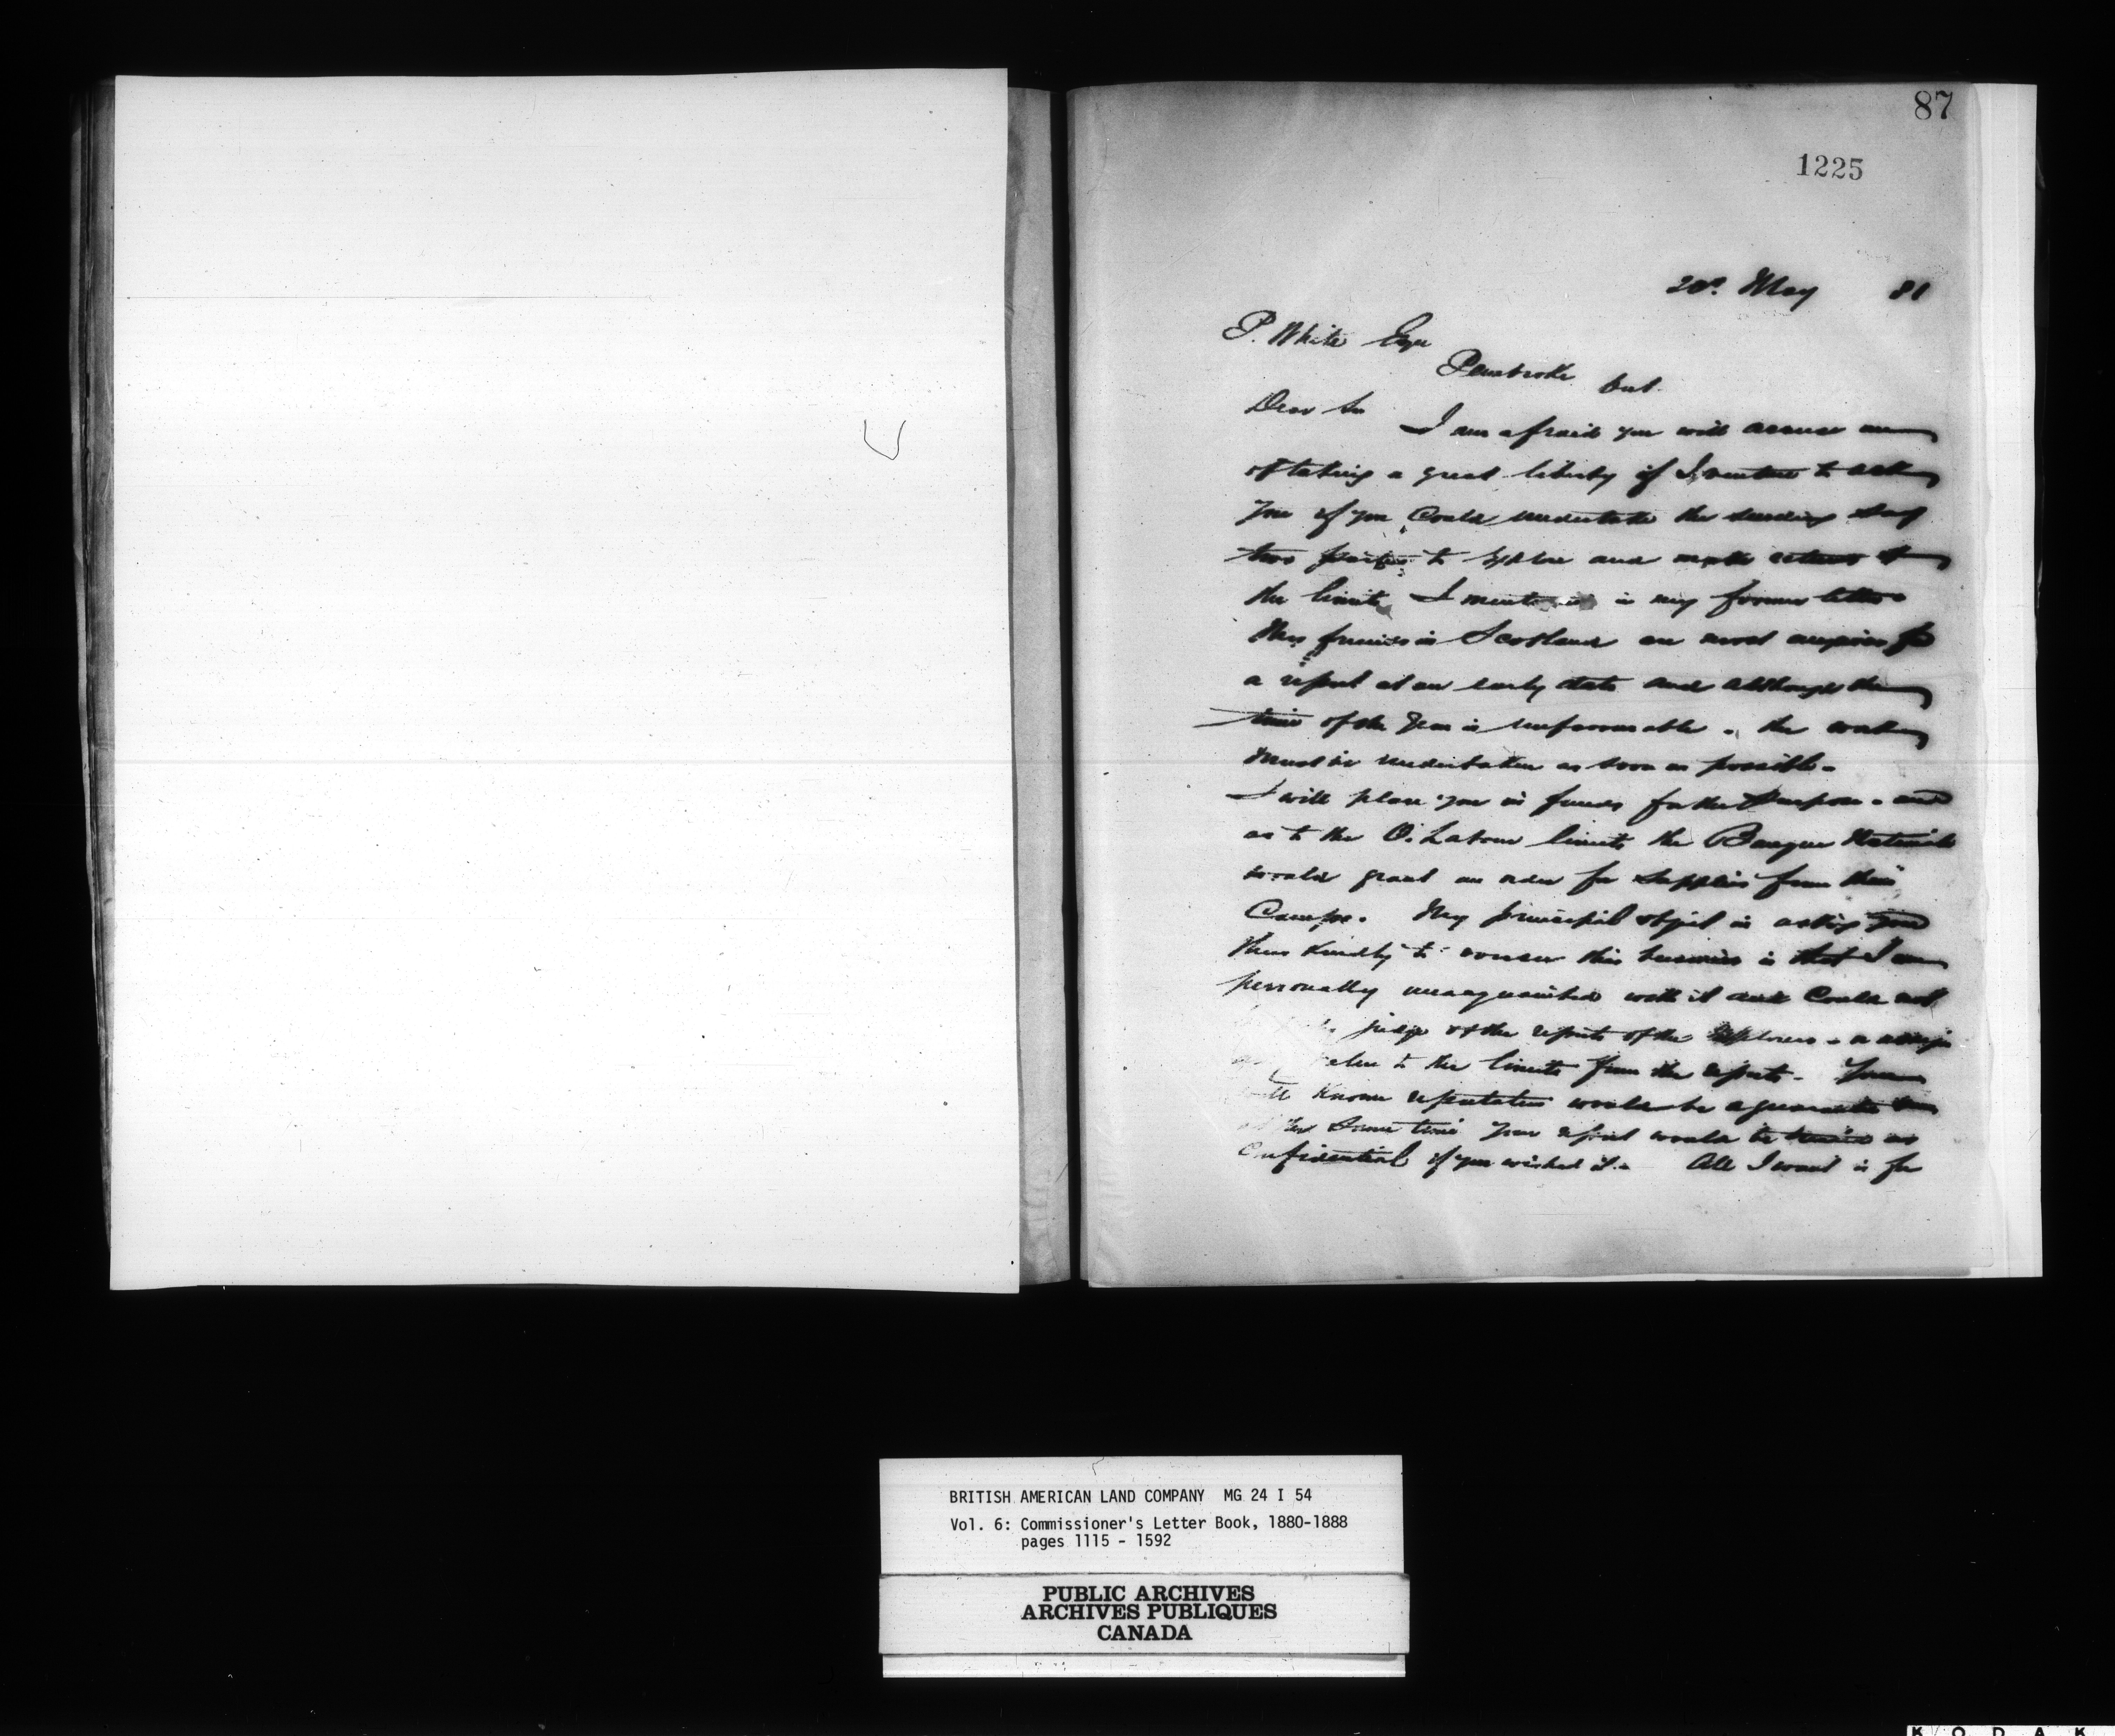 87
1225
May 81
P. White Esqr
Pembroke Ont.
Dear Sir I am afraid you will accuse me
of taking a great liberty if I venture to ask
you if you could undertake the sending say
two parties to explore and make returns of
the limits I mentioned in my former letter
My friends in Scotland are most anxious for
a report at an early date and although the
time of the year is unfavourable - the work
must be undertaken as soon as possible -
I will place you in funds for the purpose - and
as to the limits the Banque Nationale
would grant an order for supplies from their
Camps. My principal object in asking you
thus kindly to oversee this business is that I am
personally unacquainted with it and could not
judge of the reports of the explorers - or assign
value to the limits from the reports - Your
well known reputation would be a guarantee
at the same time your report would be as
confidential if you wished it - All I want is for
BRITISH AMERICAN LAND COMPANY MG 24 I 54
Vol. 6: Commissioner's Letter Book, 1880-1888
pages 1115 - 1592
PUBLIC ARCHIVES
ARCHIVES PUBLIQUES
CANADA
KODAK